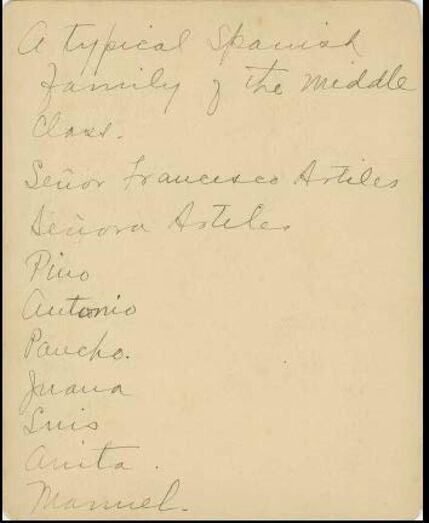 A typical Spanish
family of the middle
Class.
Señor Francisco Artiles
Señora Artiles
Pino
Antonio
Pancho.
Juana
Luis
Anita.
Manuel.